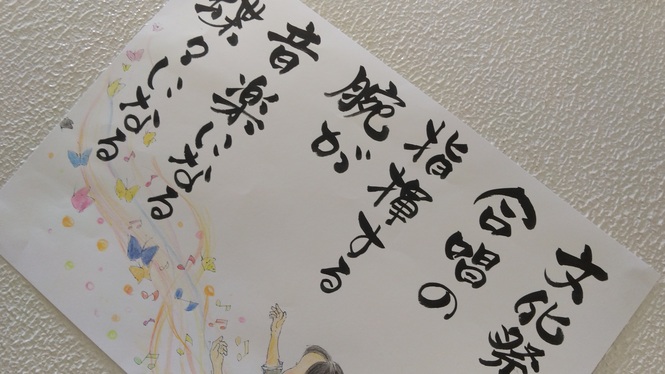 文化祭
合唱の
指揮する
腕が
音楽になる
蝶々になる